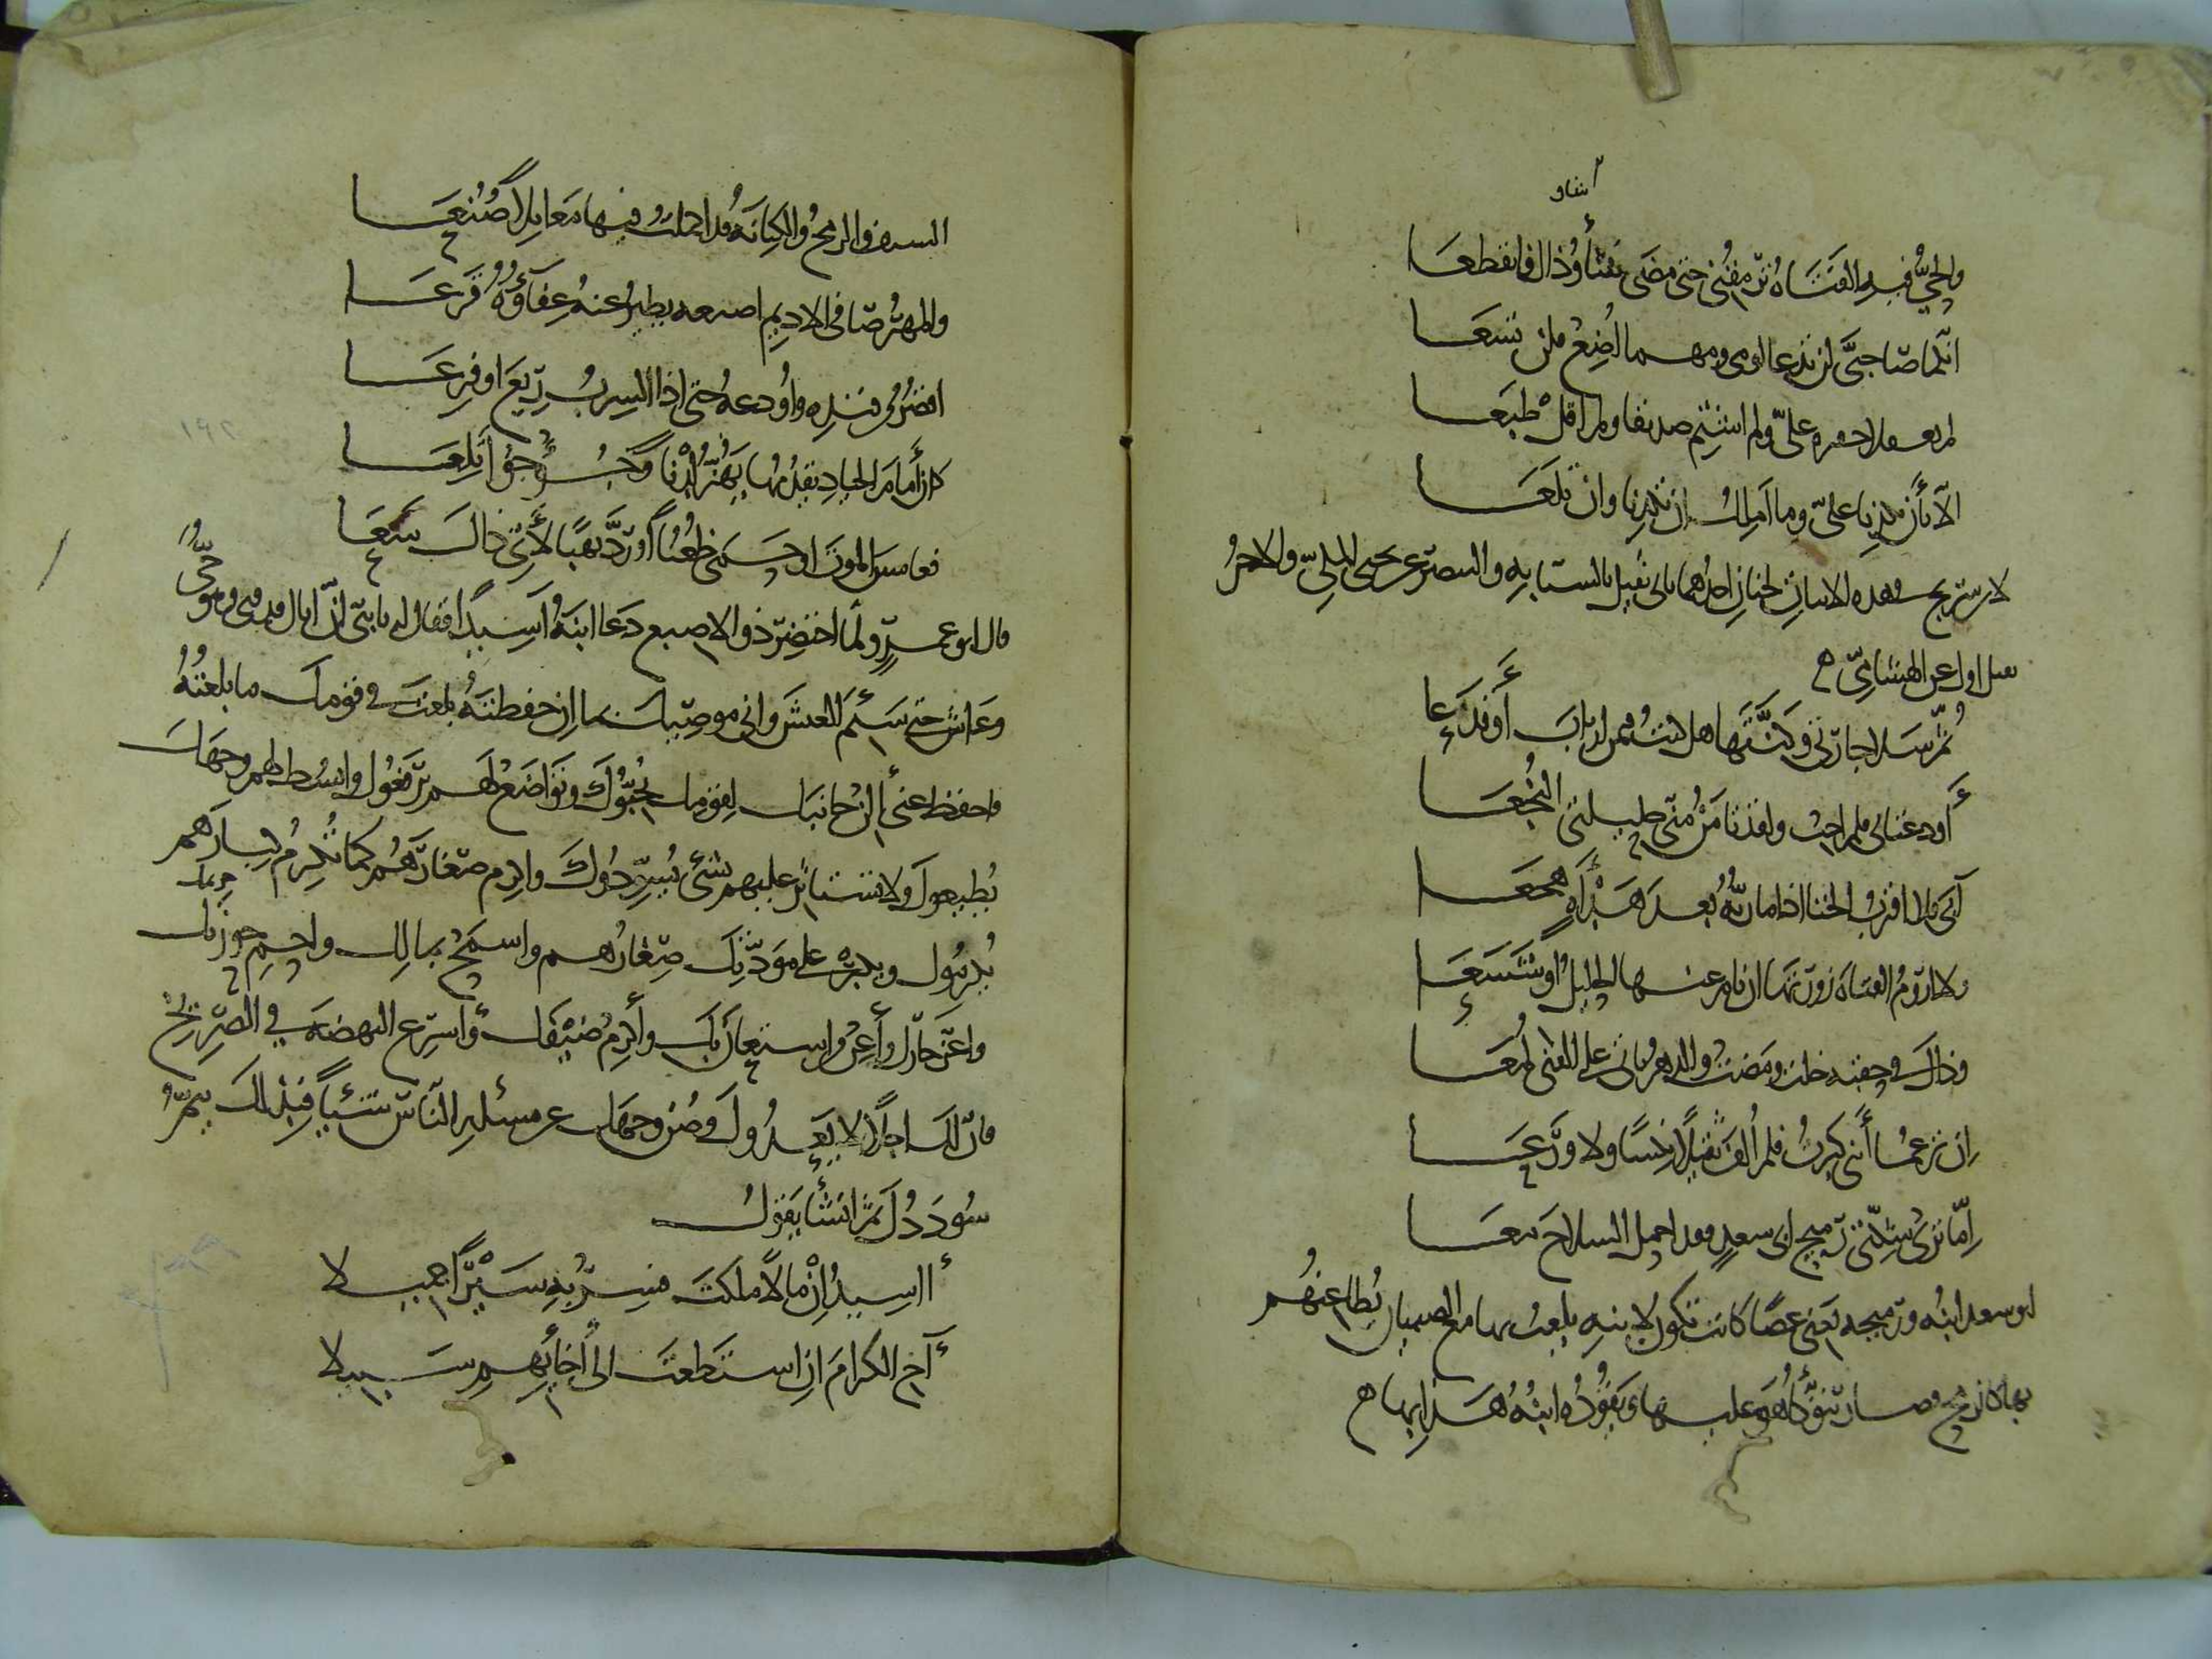 شاو
والحي فيه الفتاة ترمقني حتى مضى شأو ذاك فانقطعا
انكما صاحبي لن تدعا لومي ومهما اضع فلن تسعا
لم تعقلا جفرة علي ولم اشتم صديقا ولم اقل طبعا
الا بأن تكذبا علي وما املك ان تكذبا وان تلعا
لابن سريج في هذه الابيات لحنان احدهما ثاني ثقيل بالسبابة والبنصر عن يحيى المكي والاخر
ثقيل اول عن الهشامي
ثم سلا جارتي وكنتها هل كنت ممن اراب أو فدعا
أو دعتاني فلم اجب ولقد تأمن مني حليلتي الفجعا
آبى فلا اقرب الخنا اذا ما ربه بعد هدأة هجعا
ولا اروم الفتاة زورتها ان نام عنها الحليل او شسعا
وذاك في حقبة خلت ومضت والدهر ياتي على الفتى لمعا
ان تزعما أنني كبرت فلم ألف ثقيلا نكسا ولا ورعا
إما تري شكتي رميح ابي سعد فقد احمل السلاح معا
ابو سعد ابنه ورميحه يعني عصا كانت تكون لابنه يلعب بها مع الصبيان يطاعنهم
بها كالرمح فصار يتوكأ هو عليها ويقوده ابنه هذا بها
السيف والرمح والكنانة قد احملت فيها معابلا صنعا
والمهر صافي الاديم اصنعه يطير عنه عفاؤه قزعا
اقصر من قيده واودعه حتى اذا السرب ريع او فزعا
كان أمام الجياد يقدمها يهز لدنا وجؤجؤا تلعا
فغامس الموت او حمى ظعنا أو رد نهبا لأي ذاك سعا
قال ابو عمرو ولما احتضر ذو الاصبع دعا ابنه اسيدا فقال له يا بني ان اباك قد فني وهو حي
وعاش حتى سئم العيش واني موصيك بما ان حفظته بلغت في قومك ما بلغته
فاحفظ عني ألن جانبك لقومك يحبوك وتواضع لهم يرفعوك وابسط لهم وجهك
يطيعوك ولا تستاثر عليهم بشئ يسودوك واكرم صغارهم كما تكرم كبارهم
يكرمك
كبارهم ويكبر على مودتك صغارهم واسمح بمالك واحم حريمك
واعزز جارك وأعن من استعان بك وأكرم ضيفك وأسرع النهضة في الصريخ
فان لك اجلا لا يعدوك وصن وجهك عن مسئلة الناس شيئا فبذلك يتم
سوددك ثم انشأ يقول
أاسيد إن مالا ملكت فسر به سيرا جميلا
آخ الكرام ان استطعت الى إخائهم سبيلا